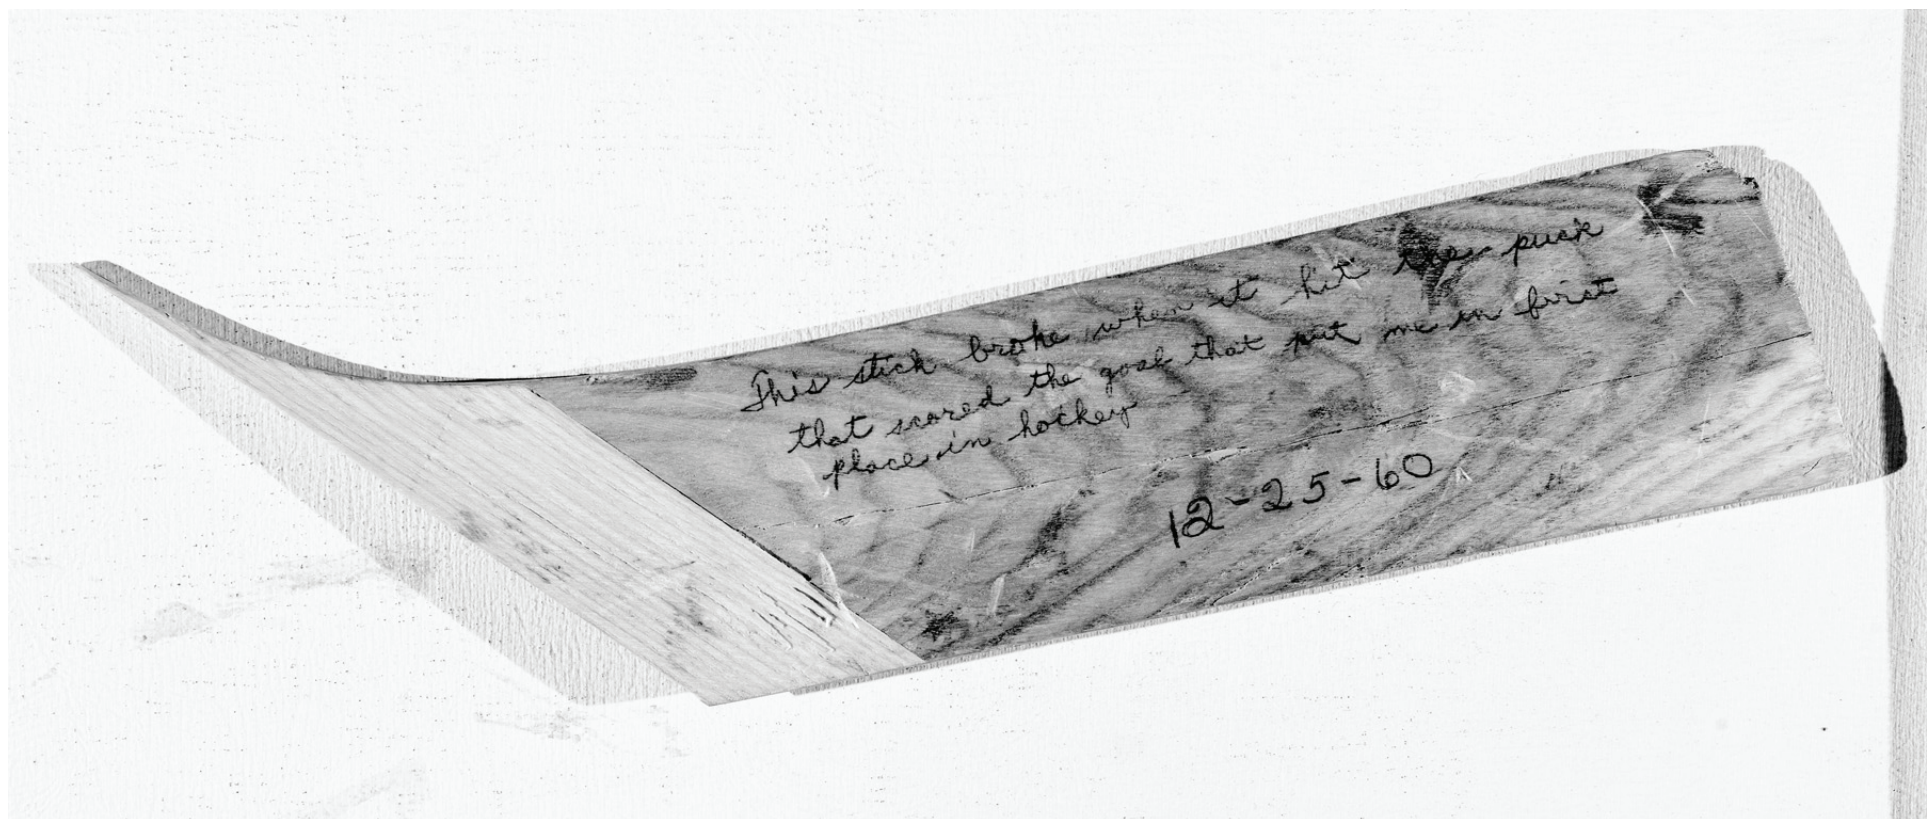 This stick broke when it hit the puck
that scored the goal that put me in first
place in hockey
12-25-60